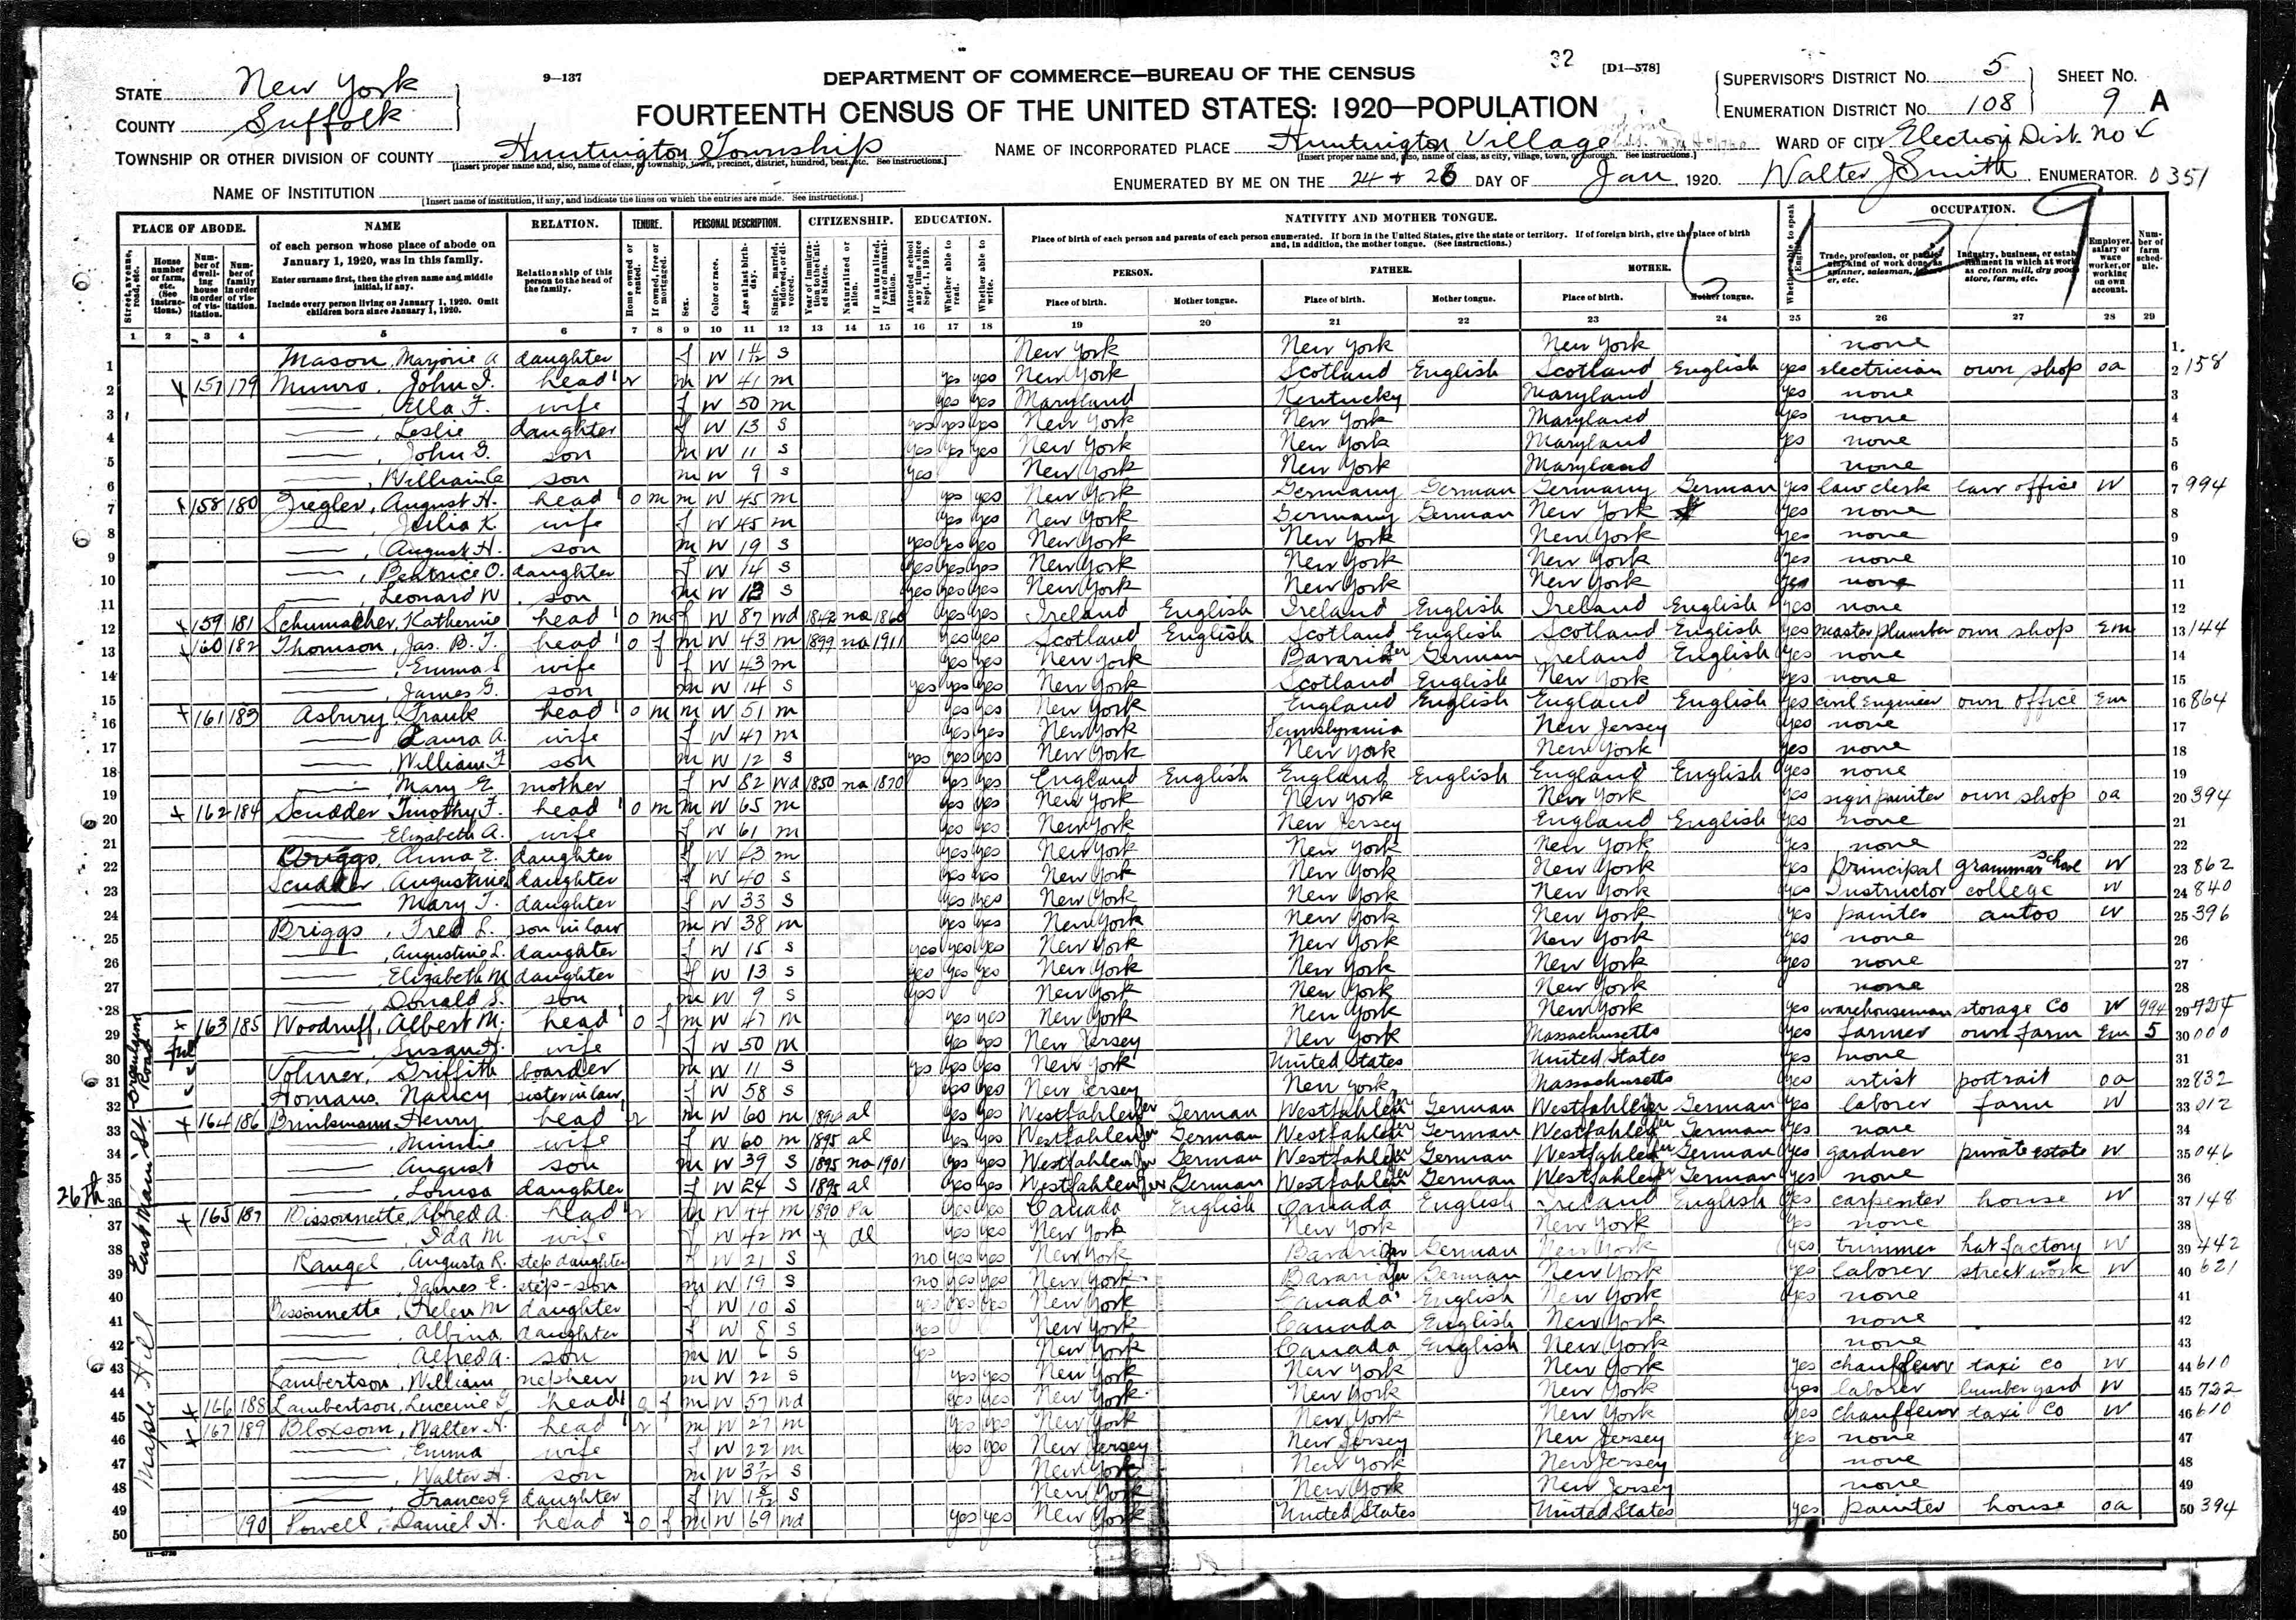 9—137
DEPARTMENT OF COMMERCE—BUREAU OF THE CENSUS
32 [D1—578]
FOURTEENTH CENSUS OF THE UNITED STATES: 1920—POPULATION
STATE New York
COUNTY Suffolk
SUPERVISOR'S DISTRICT NO. 5 SHEET NO.
ENUMERATION DISTRICT NO. 108 9 A
TOWNSHIP OR OTHER DIVISION OF COUNTY Huntington Township
[Insert proper name and, also, name of class, as township, town, precinct, district, hundred, beat, etc. See instructions.]
NAME OF INCORPORATED PLACE Huntington Village
[Insert proper name and, also, name of class, as city, village, town, or borough. See instructions.]
WARD OF CITY Election Dist. No
NAME OF INSTITUTION
[Insert name of institution, if any, and indicate the lines on which the entries are made. See instructions.]
ENUMERATED BY ME ON THE 24 + 26 DAY OF Jan, 1920. Walter J Smith ENUMERATOR. 0351
PLACE OF ABODE. NAME RELATION. TENURE. PERSONAL DESCRIPTION. CITIZENSHIP. EDUCATION. NATIVITY AND MOTHER TONGUE. OCCUPATION.
of each person whose place of abode on January 1, 1920, was in this family.
Enter surname first, then the given name and middle initial, if any.
Include every person living on January 1, 1920. Omit children born since January 1, 1920.
Relationship of this person to the head of the family.
Place of birth of each person and parents of each person enumerated. If born in the United States, give the state or territory. If of foreign birth, give the place of birth and, in addition, the mother tongue. (See instructions.)
PERSON. FATHER. MOTHER.
Place of birth. Mother tongue. Place of birth. Mother tongue. Place of birth. Mother tongue.
1 2 3 4 5 6 7 8 9 10 11 12 13 14 15 16 17 18 19 20 21 22 23 24 25 26 27 28 29
1 Mason, Marjorie A daughter f W 1 4/12 s New York New York New York none 1
2 157 179 Munro, John I. head r m W 41 m yes yes New York Scotland English Scotland English yes electrician own shop oa 2 158
3 Ella F. wife f W 50 m yes yes Maryland Kentucky Maryland yes none 3
4 Leslie daughter f W 13 s yes yes yes New York New York Maryland yes none 4
5 John G. son m W 11 s yes yes yes New York New York Maryland yes none 5
6 William C son m W 9 s yes New York New York Maryland none 6
7 158 180 Ziegler, August H. head o m m W 45 m yes yes New York Germany German Germany German yes law clerk law office W 7 994
8 Julia K wife f W 45 m yes yes New York Germany German New York yes none 8
9 August H. son m W 19 s yes yes yes New York New York New York yes none 9
10 Beatrice O. daughter f W 14 s yes yes yes New York New York New York yes none 10
11 Leonard W. son m W 12 s yes yes yes New York New York New York yes none 11
12 159 181 Schumacher, Katherine head o m f W 87 wd 1842 na 1860 yes yes Ireland English Ireland English Ireland English yes none 12
13 160 182 Thomson, Jas. B. T. head o f m W 43 m 1899 na 1911 yes yes Scotland English Scotland English Scotland English yes master plumber own shop Em 13 144
14 Emma S wife f W 43 m yes yes New York Bavaria Ger German Ireland English yes none 14
15 James G. son m W 14 s yes yes yes New York Scotland English New York yes none 15
16 161 183 Asbury Frank head o m m W 51 m yes yes New York England English England English yes civil Engineer own office Em 16 864
17 Laura A. wife f W 47 m yes yes New York Pennsylvania New Jersey yes none 17
18 William F son m W 12 s yes yes yes New York New York New York yes none 18
19 Mary E. mother f W 82 Wd 1850 na 1870 yes yes England English England English England English yes none 19
20 162 184 Scudder Timothy F. head o m m W 65 m yes yes New York New York New York yes sign painter own shop oa 20 394
21 Elizabeth A. wife f W 61 m yes yes New York New Jersey England English yes none 21
22 Briggs, Anna E. daughter f W 43 m yes yes New York New York New York yes none 22
23 Scudder, Augustine daughter f W 40 s yes yes New York New York New York yes Principal grammar school W 23 862
24 Mary F. daughter f W 33 s yes yes New York New York New York yes Instructor college W 24 840
25 Briggs, Fred L. son in law m W 38 m yes yes New York New York New York yes painter autos W 25 396
26 Augustine L. daughter f W 15 s yes yes yes New York New York New York yes none 26
27 Elizabeth M daughter f W 13 s yes yes yes New York New York New York yes none 27
28 Donald S. son m W 9 s yes New York New York New York none 28
29 163 185 Woodruff, Albert M. head o f m W 47 m yes yes New York New York New York yes warehouseman storage Co W 994 29 724
30 Susan H. wife f W 50 m yes yes New Jersey New York Massachusetts yes farmer own farm Em 5 30 000
31 Volmer, Griffith boarder m W 11 s yes yes yes New York United States United States yes none 31
32 Homans, Nancy sister in law f W 58 s yes yes New Jersey New York Massachusetts yes artist portrait oa 32 832
33 164 186 Brinkmann Henry head r m W 60 m 1894 al yes yes Westfahlen Ger German Westfahlen Ger German Westfahlen Ger German yes laborer farm W 33 012
34 Minnie wife f W 60 m 1895 al yes yes Westfahlen Ger German Westfahlen Ger German Westfahlen Ger German yes none 34
35 August son m W 39 s 1895 na 1901 yes yes Westfahlen Ger German Westfahlen Ger German Westfahlen Ger German yes gardner private estate W 35 046
36 Louisa daughter f W 24 s 1895 al yes yes Westfahlen Ger German Westfahlen Ger German Westfahlen Ger German yes none 36
26th
37 165 187 Bissonnette, Alfred A. head r m W 44 m 1890 Pa yes yes Canada English Canada English Ireland English yes carpenter house W 37 148
38 Ida M wife f W 42 m x al yes yes New York New York New York yes none 38
39 Rangel, Augusta R. step daughter f W 21 s no yes yes New York Bavaria Ger German New York yes trimmer hat factory W 39 442
40 James E. step-son m W 19 s no yes yes New York Bavaria Ger German New York yes laborer street work W 40 621
41 Bissonnette, Helen M daughter f W 10 s yes yes yes New York Canada English New York yes none 41
42 Albina daughter f W 8 s yes New York Canada English New York none 42
43 Alfred A. son m W 6 s yes New York Canada English New York none 43
44 Lambertson, William nephew m W 22 s yes yes New York New York New York yes chauffeur taxi co W 44 610
45 166 188 Lambertson, head o f m W 57 wd yes yes New York New York New York yes laborer lumber yard W 45 722
46 167 189 Bloxsom, Walter H. head r m W 27 m yes yes New York New York New York yes chauffeur taxi Co W 46 610
47 Emma wife f W 22 m yes yes New Jersey New Jersey New Jersey yes none 47
48 Walter H. son m W s New York New York New Jersey none 48
49 Frances E daughter f W 1 8/12 s New York New York New Jersey none 49
50 190 Powell, Daniel H. head o f m W 69 wd yes yes New York United States United States yes painter house oa 50 394
East Main St
Maple Hill
11—6720